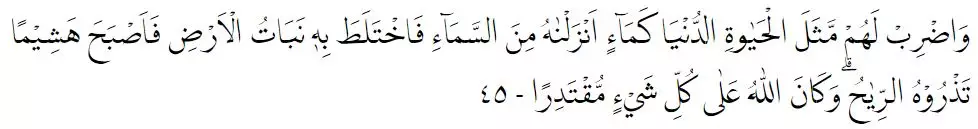 وَاضْرِبْ لَهُمْ مَّثَلَ الْحَيٰوةِ الدُّنْيَا كَمَاۤءٍ اَنْزَلْنٰهُ مِنَ السَّمَاۤءِ فَاخْتَلَطَ بِهٖ نَبَاتُ الْاَرْضِ فَاَصْبَحَ هَشِيْمًا
تَذْرُوْهُ الرِّيٰحُ ۗوَكَانَ اللّٰهُ عَلٰى كُلِّ شَيْءٍ مُّقْتَدِرًا - ٤٥